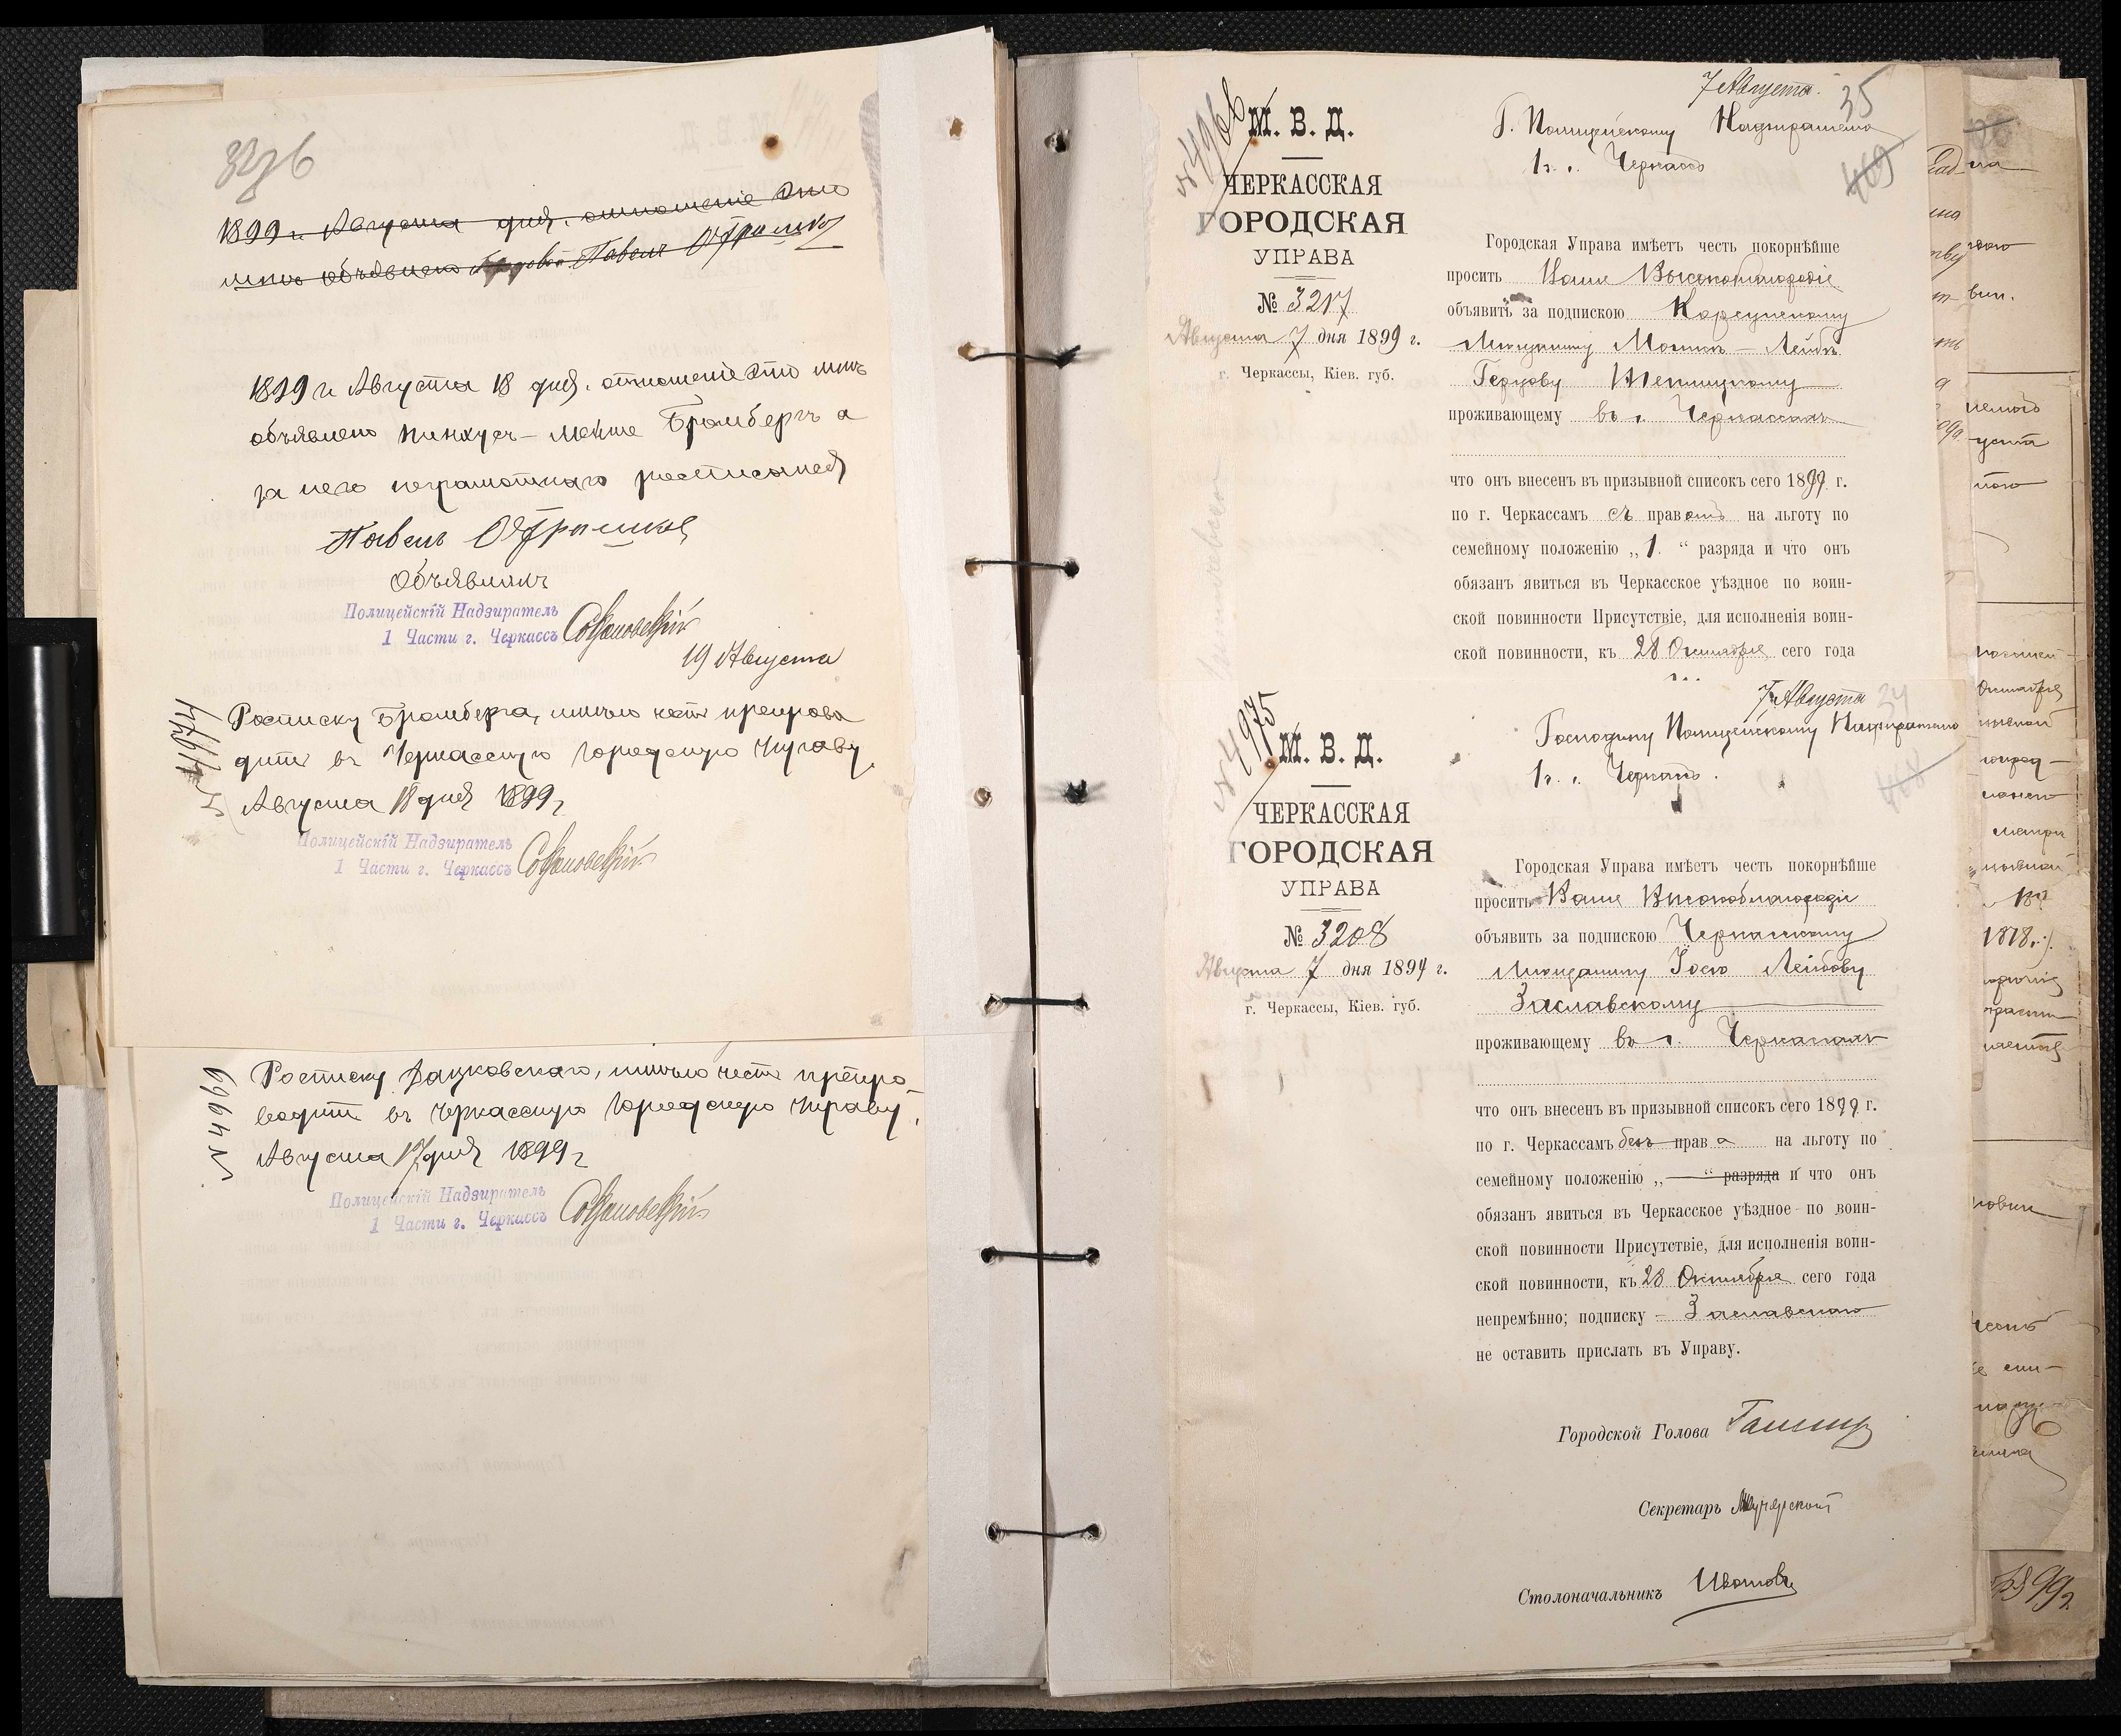 1899 г. Августа дня, отношеніе это
мнѣ объявлено Павелъ
1899 г. Августа 18 дня, отношеніе это мнѣ
объявлено Пинхусъ-Мекше Бромбергъ а
за него неграмотнаго росписался
Павелъ
Объявилъ
Полицейскій Надзиратель
1 Части г. Черкассъ
19 Августа
№ 4974
Росписку Бромберга, имѣю честь препрово
дить въ Черкасскую Городскую Управу.
Августа 18 дня 1899 г.
Полицейскій Надзиратель
1 Части г. Черкассъ
№ 4969
Росписку Дацковскаго, имѣю честь препро-
водить въ Черкасскую Городскую Управу.
Августа 17 дня 1899 г.
Полицейскій Надзиратель
1 Части г. Черкассъ
7 Августа.
35
469
№ 4966
М. В. Д.
ЧЕРКАССКАЯ
ГОРОДСКАЯ
УПРАВА
№ 3217
Августа 7 дня 1899 г.
г. Черкассы, Кіев. губ.
Г. Полицейскому Надзирателю
1 ч. г. Черкассъ
Городская Управа имѣетъ честь покорнѣйше
проситъ Ваше Высокоблагородіе
объявить за подпискою Корсунскому
Мѣщанину Мошко-Лейбѣ
Герцову Шепшицкому
проживающему въ г. Черкассахъ
что онъ внесенъ въ призывной списокъ сего 1899 г.
по г. Черкассамъ съ правомъ на льготу по
семейному положенію „1." разряда и что онъ
обязанъ явиться въ Черкасское уѣздное по воин-
ской повинности Присутствіе, для исполненія воин-
ской повинности, къ 28 Октября сего года
7 Августа
468
№ 4975
М. В. Д.
ЧЕРКАССКАЯ
ГОРОДСКАЯ
УПРАВА
№ 3208
Августа 7 дня 1899 г.
г. Черкассы, Кіев. губ.
Господину Полицейскому Надзирателю
1 ч. г. Черкассъ.
Городская Управа имѣетъ честь покорнѣйше
проситъ Ваше Высокоблагородіе
объявить за подпискою Черкасскому
Мѣщанину Іосю Лейбову
Заславскому
проживающему въ г. Черкассахъ
что онъ внесенъ въ призывной списокъ сего 1899 г.
по г. Черкассамъ безъ права на льготу по
семейному положенію „—" разряда и что онъ
обязанъ явиться въ Черкасское уѣздное по воин-
ской повинности Присутствіе, для исполненія воин-
ской повинности, къ 28 Октября сего года
непремѣнно; подписку - Заславскаго
не оставить прислать въ Управу.
Городской Голова
Секретарь
Столоначальникъ